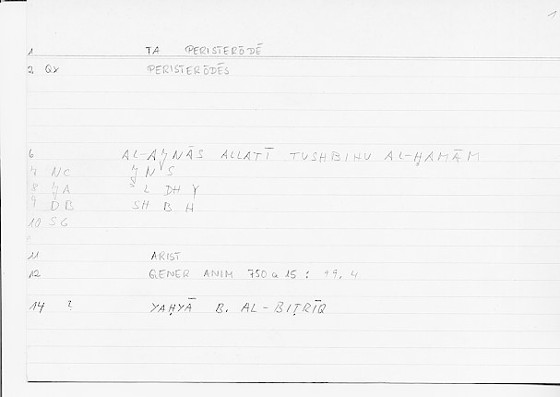 1
1 TA PERISTERŌDĒ
2 QY PERISTERŌDĒS
6 AL-AǦNĀS ALLATĪ TUSHBIHU AL-ḤAMĀM
7 NC Ǧ N S
8 ǦA ʾL DH Y
9 DB SH B H
10 SG
11 ARIST
12 GENER ANIM 750 a 15 :
14 ? YAḤYĀ B. AL-BIṬRĪQ